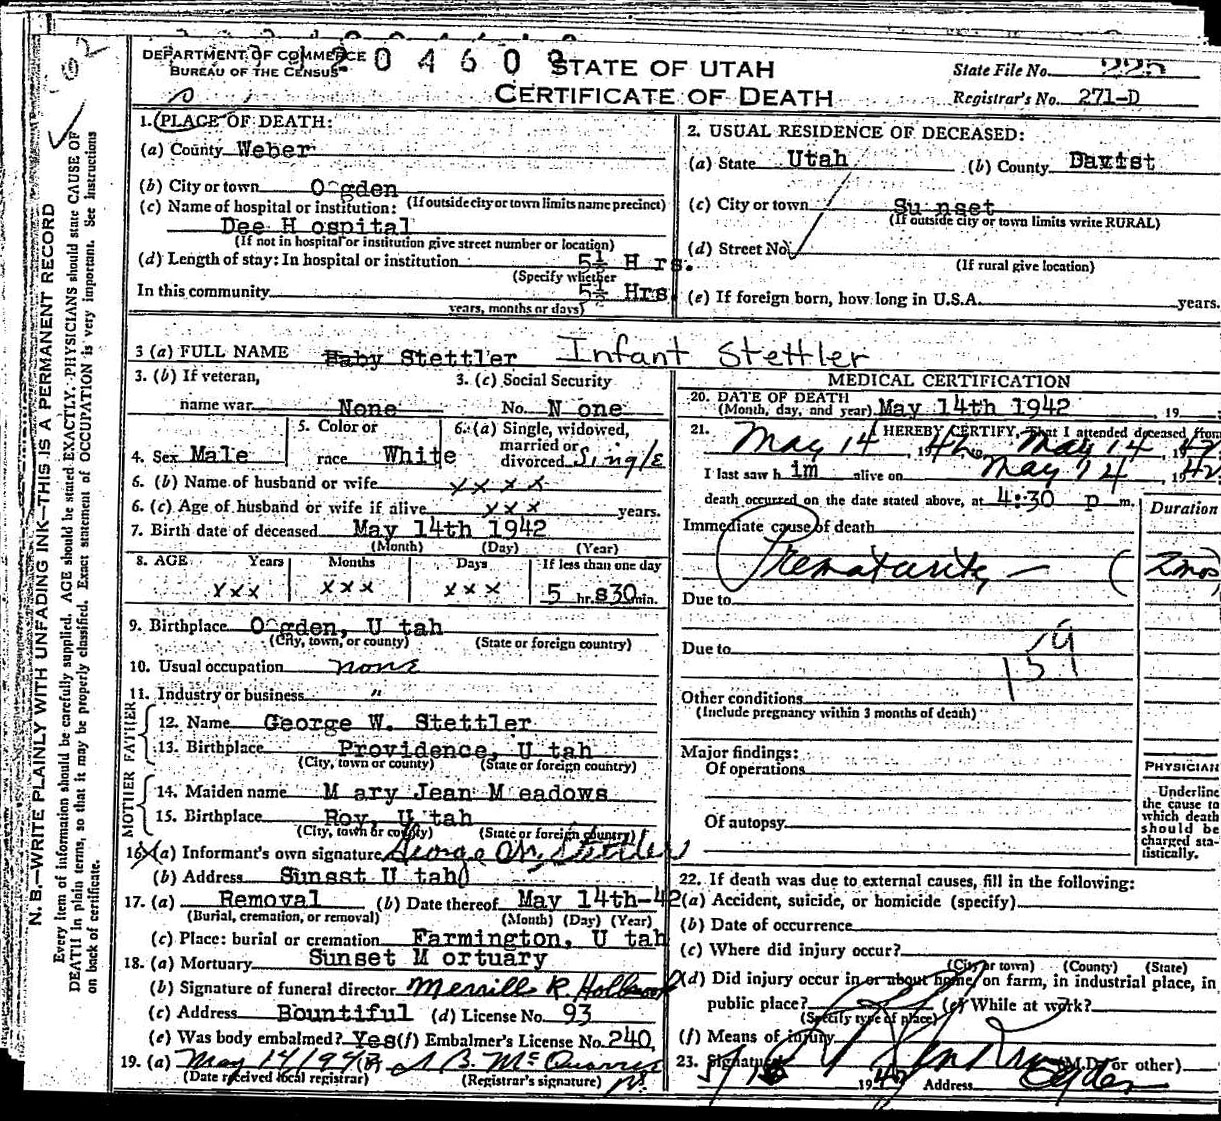 DEPARTMENT OF COMMERCE
BUREAU OF THE CENSUS
0 4 6 0
STATE OF UTAH
CERTIFICATE OF DEATH
State File No. 225
Registrar's No. 271-D
1. (PLACE OF DEATH:
(a) County Weber
(b) City or town Ogden
(If outside city or town limits name precinct)
(c) Name of hospital or institution:
Dee H ospital
(If not in hospital or institution give street number or location)
(d) Length of stay: In hospital or institution 5½ H rs.
(Specify whether
In this community 5½ Hrs
years, months or days)
2. USUAL RESIDENCE OF DECEASED:
(a) State Utah (b) County Davist
(c) City or town Su nset
(If outside city or town limits write RURAL)
(d) Street No.
(If rural give location)
(e) If foreign born, how long in U.S.A. years.
3 (a) FULL NAME Baby Stettler Infant Stettler
3. (b) If veteran, name war None
3. (c) Social Security No. N one
4. Sex Male
5. Color or race White
6. (a) Single, widowed, married or divorced Single
6. (b) Name of husband or wife x x x x
6. (c) Age of husband or wife if alive x x x years.
7. Birth date of deceased May 14th 1942
(Month) (Day) (Year)
8. AGE Years Months Days If less than one day
xxx xxx xxx 5 hr.s 30 min.
9. Birthplace Ogden, U tah
(City, town, or county) (State or foreign country)
10. Usual occupation none
11. Industry or business "
FATHER
12. Name George W. Stettler
13. Birthplace Providence, U tah
(City, town or county) (State or foreign country)
MOTHER
14. Maiden name M ary Jean M eadows
15. Birthplace Roy, U tah
(City, town or county) (State or foreign country)
16. X (a) Informant's own signature George W. Stettler
(b) Address Sunset U tah
17. (a) Removal (b) Date thereof May 14th-42
(Burial, cremation, or removal) (Month) (Day) (Year)
(c) Place: burial or cremation Farmington, U tah
18. (a) Mortuary Sunset M ortuary
(b) Signature of funeral director Merrill R. Holbrook
(c) Address Bountiful (d) License No. 93
(e) Was body embalmed? Yes (f) Embalmer's License No. 240
19. (a) May 14/1942 (b)
(Date received local registrar) (Registrar's signature)
MEDICAL CERTIFICATION
20. DATE OF DEATH
(Month, day, and year) May 14th 1942, 19
21. I HEREBY CERTIFY, That I attended deceased from
May 14, 1942, to May 14, 1942
I last saw h im alive on May 14, 1942
death occurred on the date stated above, at 4:30 p m.
Duration
Immediate cause of death
Prematurity — (2 mos)
Due to
59
Due to
159
Other conditions
(Include pregnancy within 3 months of death)
Major findings:
Of operations
Of autopsy
PHYSICIAN
Underline
the cause to
which death
should be
charged sta-
tistically.
22. If death was due to external causes, fill in the following:
(a) Accident, suicide, or homicide (specify)
(b) Date of occurrence
(c) Where did injury occur?
(City or town) (County) (State)
(d) Did injury occur in or about home, on farm, in industrial place, in
public place? (e) While at work?
(Specify type of place)
(f) Means of injury
23. Signature (M.D. or other)
1942 Address Ogden
N. B.—WRITE PLAINLY WITH UNFADING INK—THIS IS A PERMANENT RECORD
Every item of information should be carefully supplied. AGE should be stated EXACTLY. PHYSICIANS should state CAUSE OF
DEATH in plain terms, so that it may be properly classified. Exact statement of OCCUPATION is very important. See instructions
on back of certificate.